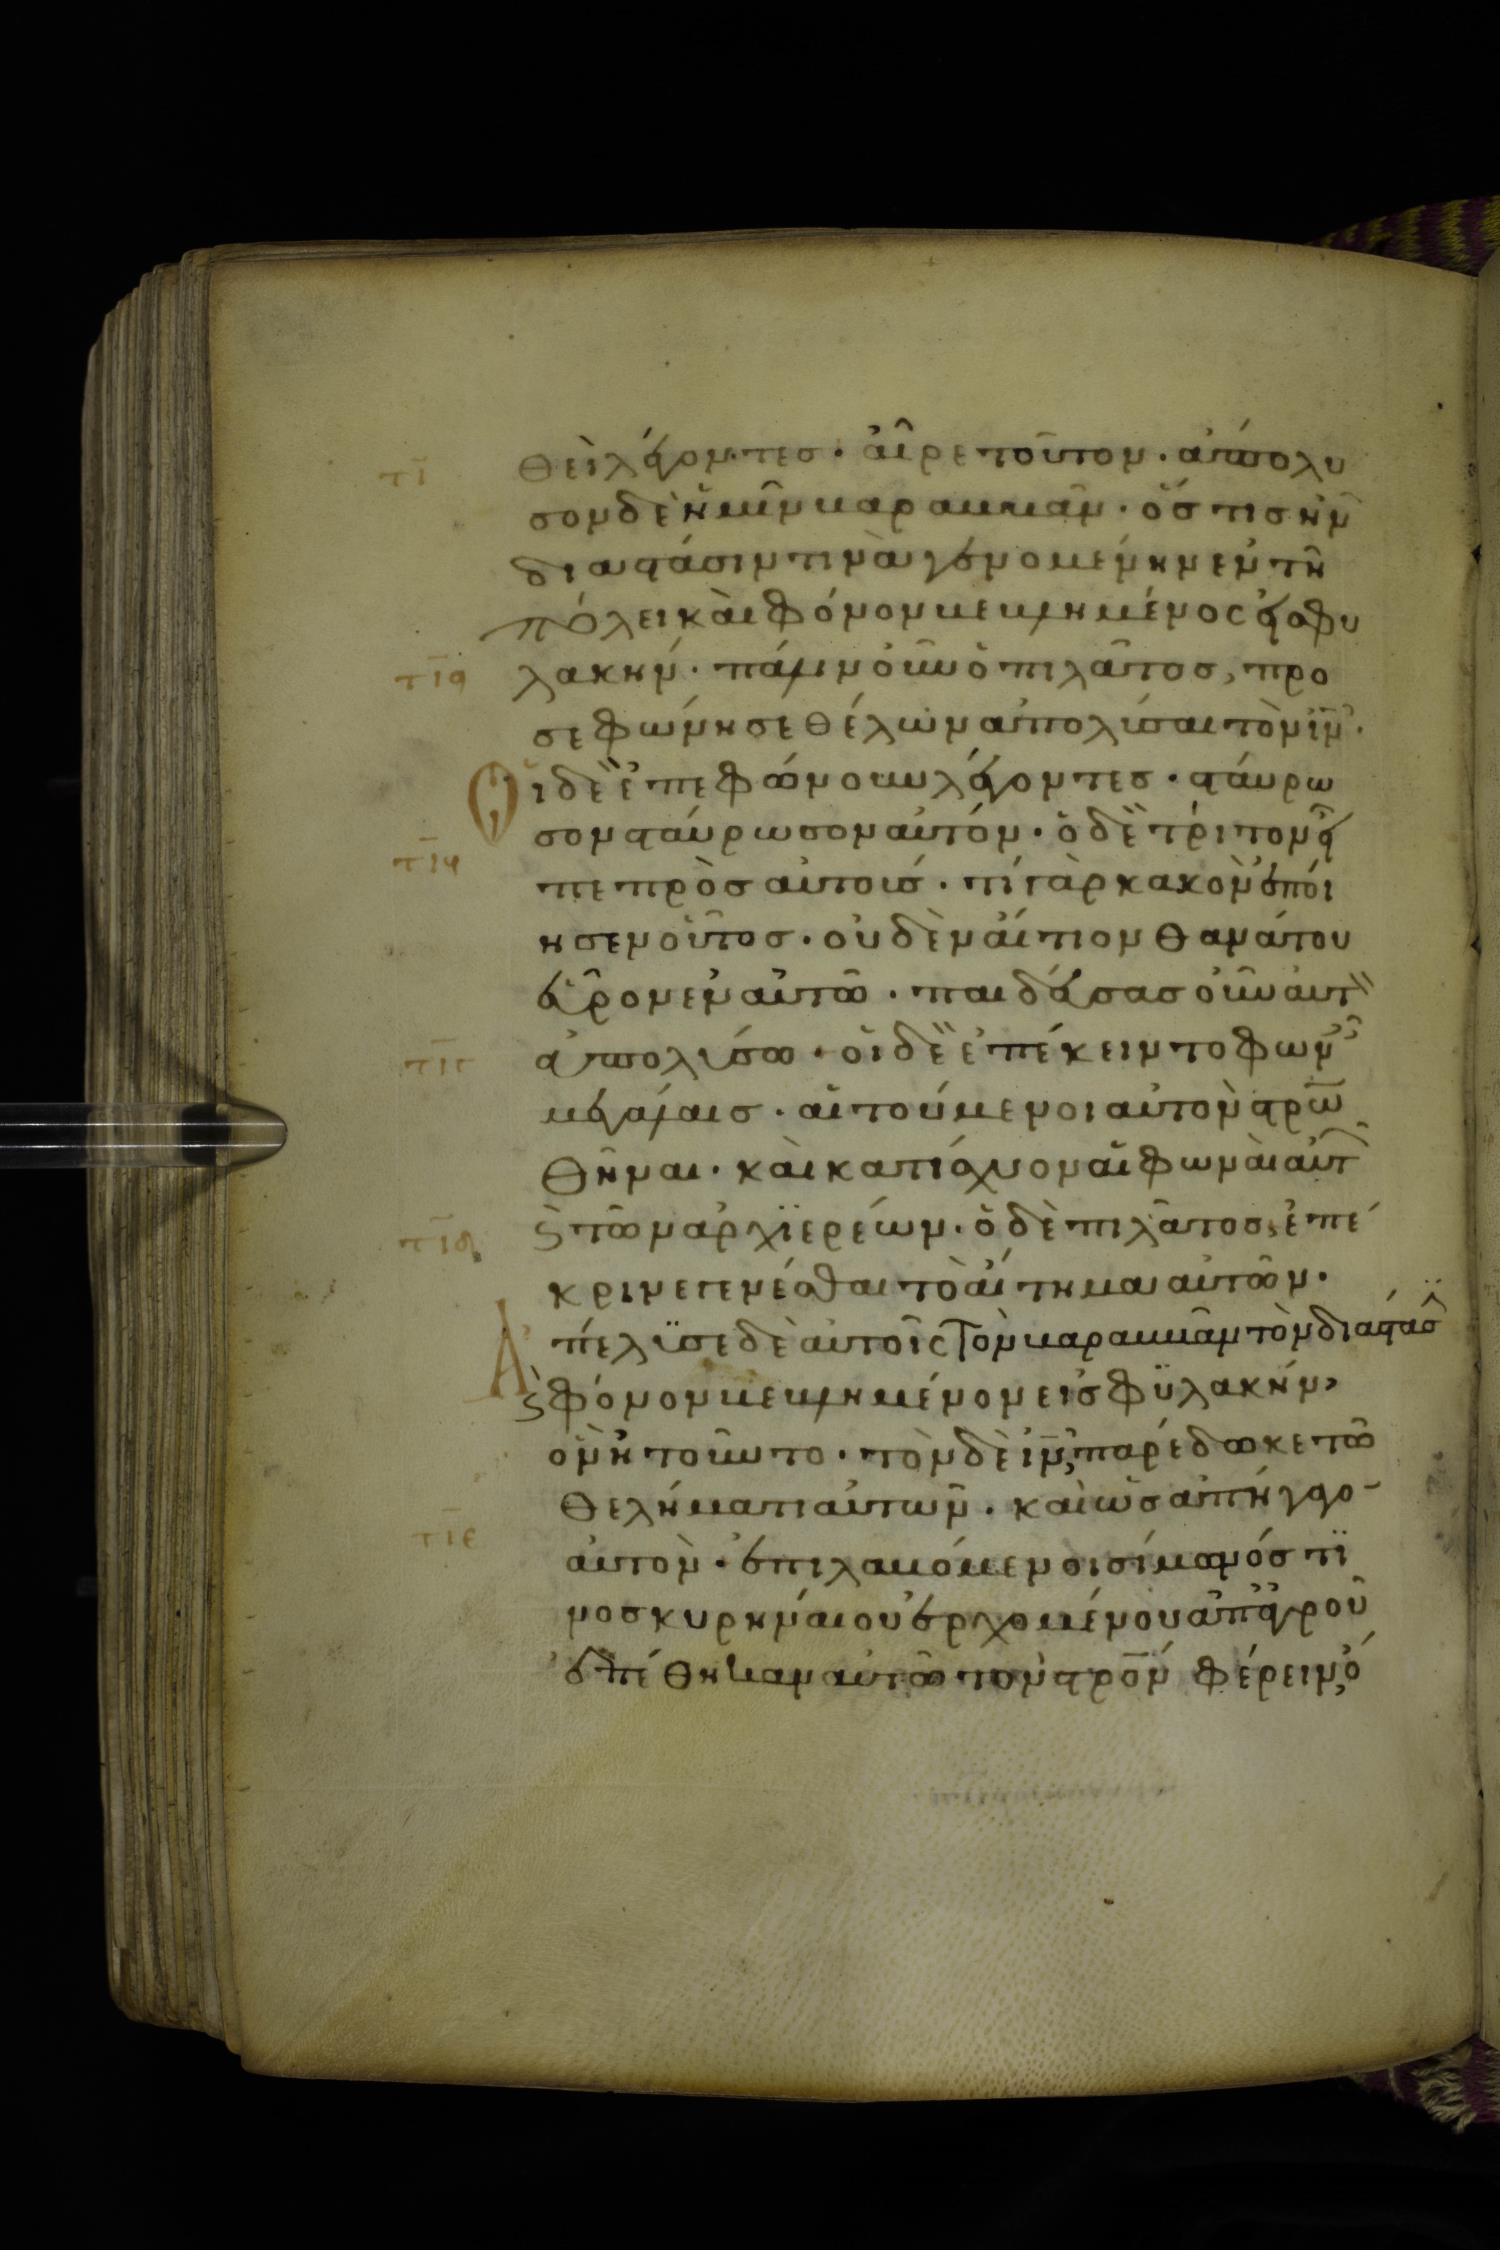 τι θεὶ λέγοντες · αἶρε τοῦτον · ἀπόλυ
σον δὲ ἡμῖν βαραββᾶν · ὅστις ἦν
διαστάσιν τινὰ γενομένην ἐν τῆ
πόλει καὶ φόνον βεβλημένος ἐς φυ
τια λακήν · πάλιν οὖν ὁ πιλᾶτος, προ
σεφώνησε θέλων ἀπολῦσαι τὸν ιν ·
Οἱ δὲ ἐπεφώνουν λέγοντες · σταύρω
σον σταύρωσον αὐτόν · ὁ δὲ τρίτον εἶ
τιβ πε πρὸς αὐτούς · τί γὰρ κακὸν ἐποί
ησεν οὗτος · οὐδὲν αἴτιον θανάτου
εὗρον ἐν αὐτῶ · παιδεύσας οὖν αὐτ
τιγ ἀπολύσω · οἱ δὲ ἐπέκειντο φων
μεγάλαις · αἰτούμενοι αὐτὸν στρω
θῆναι · καὶ κατίσχυον αἱ φωναὶ αὐτ
τιδ ϗ τῶν ἀρχϊερέων · ὁ δὲ πιλᾶτος, ἐπέ
κρινε γενέσθαι τὸ αἴτημα αὐτῶν ·
Ἀπέλϋσε δὲ αὐτοῖς τὸν βαραββᾶν τὸν διαστασ
ϗ φόνον βεβλημένον εἰς φϋλακήν,
ὃν ἠτοῦντο · τὸν δὲ ιν, παρέδωκε τῶ
θελήματι αὐτῶν · καὶ ὡς ἀπήγαγο
τιε αὐτὸν · ἐπιλαβόμενοι σίμωνός τϊ
νος κυρηναίου ἐρχομένου ἀπ ἀγροῦ
ἐπέθηκαν αὐτῶ τὸν στρον φέρειν, ὄ